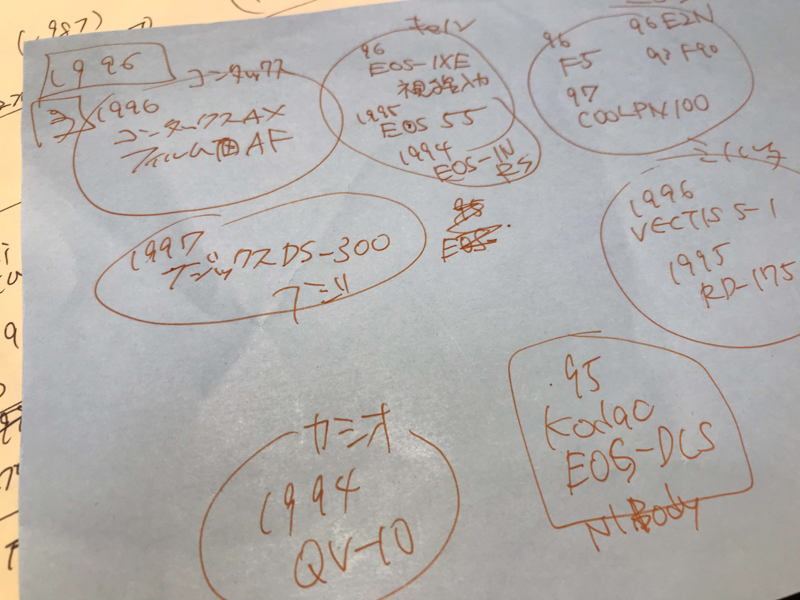 1996
コンタックス
1996
コンタックスAX
フィルム面AF
キャノン
96
EOS-IXE
視線入力
1995
EOS 55
1994
EOS-1N
RS
96
F5
96 E2N
97
COOLPIX100
ミノルタ
1996
VECTIS S-1
1995
RD-175
1997
DS-300
フジ
カシオ
1994
QV-10
95
Kodac
EOS-DCS
N1 Body